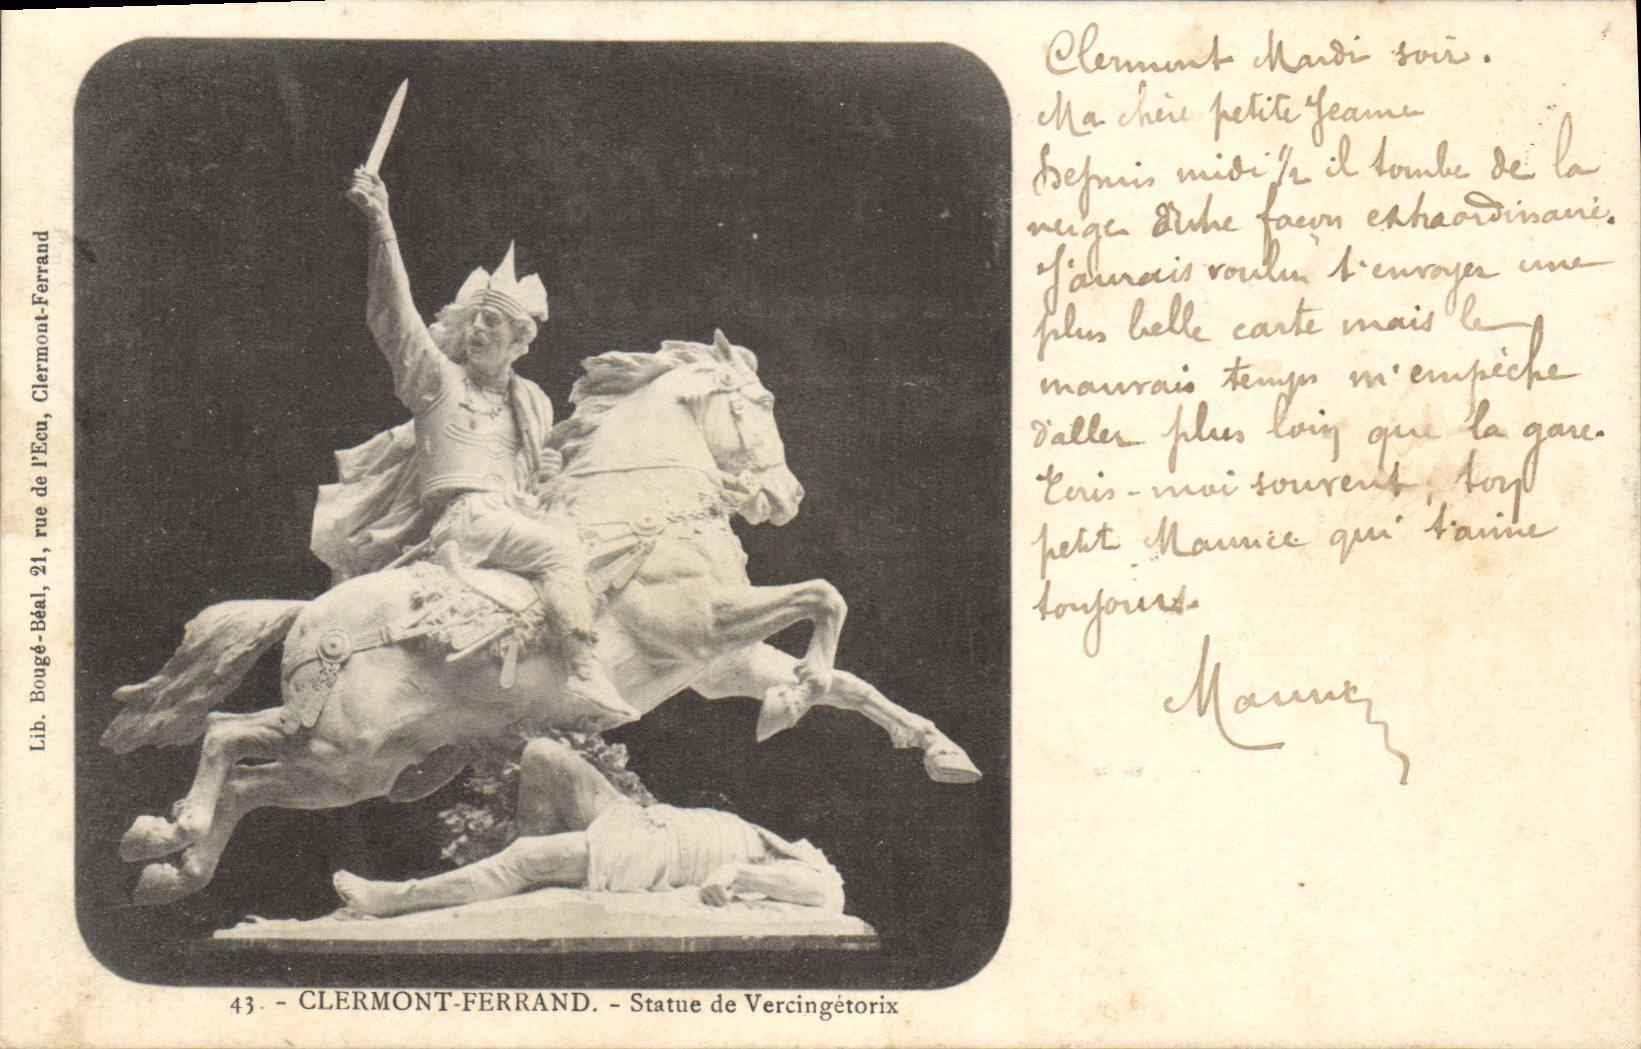 Clermont Mardi soir.
Ma chère petite Jeanne
Depuis midi 1/2 il tombe de la
neige d'une façon extraordinaire.
J'aurais voulu t'envoyer une
plus belle carte mais le
mauvais temps m'empêche
d'aller plus loin que la gare.
Ecris-moi souvent, ton
petit Maurice qui t'aime
toujours.
Maurice
Lib. Bougé-Béal, 21, rue de l'Ecu, Clermont-Ferrand
43. - CLERMONT-FERRAND. - Statue de Vercingétorix